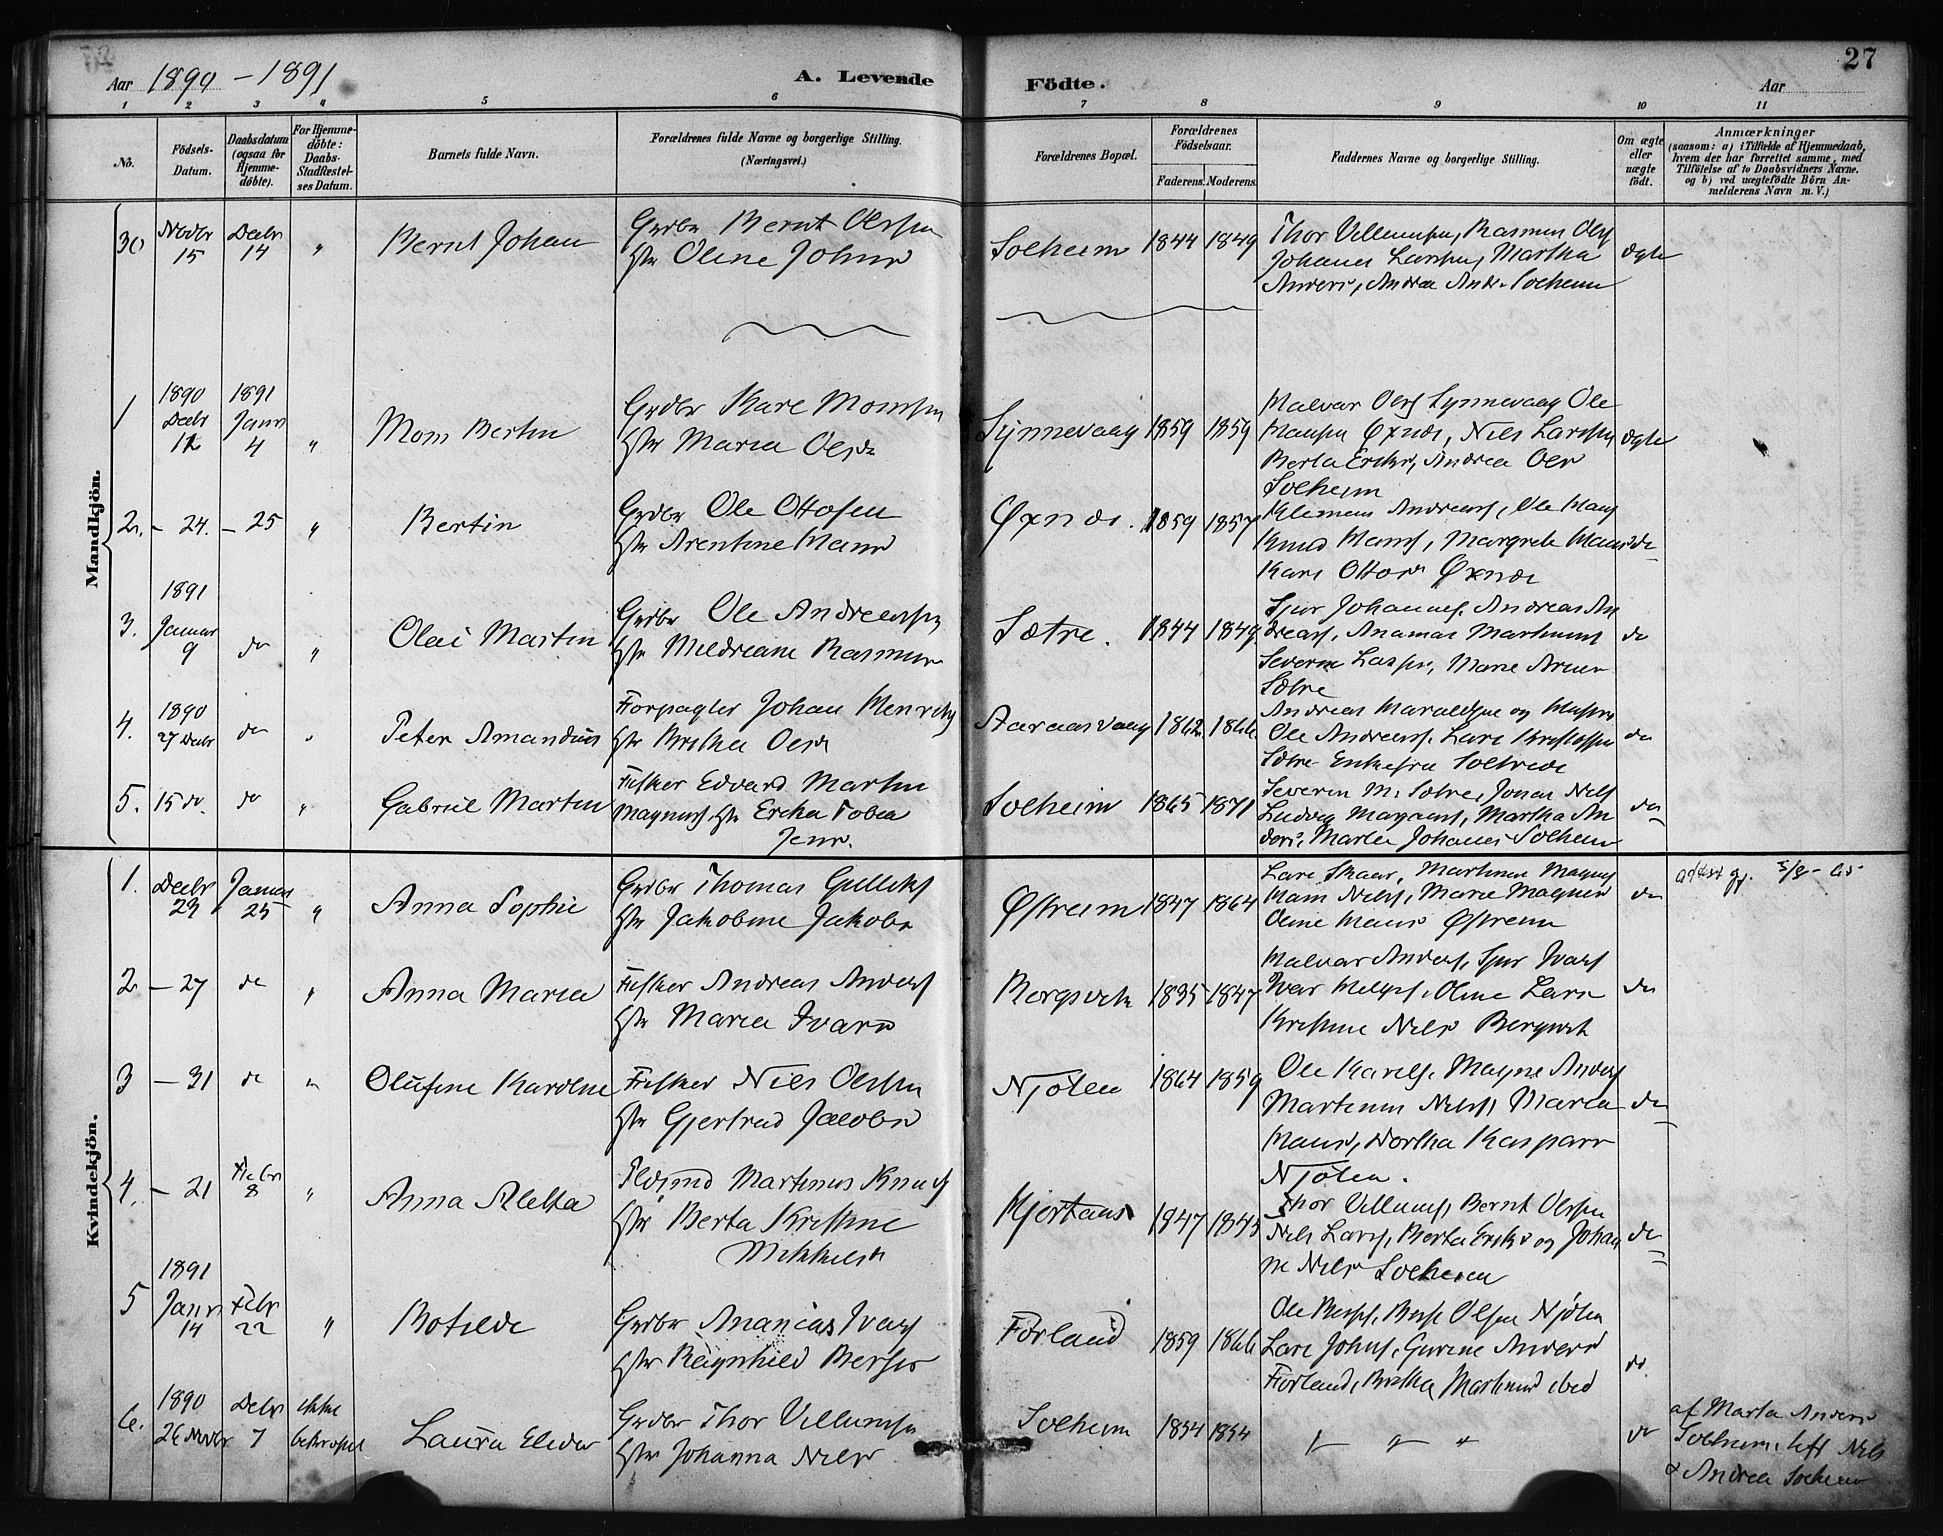 27
Aar 1890 - 1891
A. Levende Födte.
Aar
1 2 3 4 5 6 7 8 9 10 11
No.
Födsels-Datum.
Daabsdatum (ogsaa for Hjemme-döbte).
For Hjemme-döbte: Daabs-Stadfæstel-ses Datum.
Barnets fulde Navn.
Forældrenes fulde Navne og borgerlige Stilling. (Næringsvei.)
Forældrenes Bopæl.
Forældrenes Födselsaar.
Faderens. Moderens.
Faddernes Navne og borgerlige Stilling.
Om ægte eller uægte födt.
Anmærkninger
(saasom: a) i Tilfælde af Hjemmedaab, hvem der har forrettet samme, med Tilföielse af to Daabsvidners Navne. og b) ved uægtefödte Börn An-melderens Navn m. V.)
Mandkjön.
30 Novbr 15 Decbr 14 " Bernt Johan
Grdbr Bernt Olssen
Hstr Oline Johns
Solheim 1844 1849
Thor Villumsen, Rasmus Ols
Johannes Larssen, Martha
Anders, Andrea And. Solheim
ægte
1 1890 Decbr 12 1891 Janr 4 " Mons Bertin
Grdbr Kare Monssen
Hstr Maria Olsdr
Synnevaag 1859 1859
Halvar Olss Synnevaag Ole
Hansen Oxnæs, Nils Larssen
Berta Eriks, Andrea Ols
Solheim
ægte
2. - 24. - 25 " Bertin
Grdbr Ole Ottosen
Hstr Arentine Hans
Øxnæs. 1859 1857
Klemens Andreass, Ole Hans
Knud Hans, Margrete Hans
Kari Ottos Øxnæs
do
3. 1891 Januar 9 do " Olai Martin
Grdbr Ole Andreassen
Hstr Meldreane Rasmus
Sætre. 1844 1849
Sjur Johannes. Andreas An
dreass, Ananias Martinus
Severine Larss, Marie Arne
Sætre
do
4. 1890 27 Decbr do " Peter Amandus
Forpagter Johan Henrik
Hstr Brithe Olsdr
Aaraasvaag 1862 1866
Andreas Haraldsen og Hustru
Ole Andreass. Lars Kristoffer
Sætre
do
5. 15 do. do " Gabriel Martin
Fisker Edvard Martin
Magnuss, Hstr Erika Tobia
Jens.
Solheim 1865 1871
Severin M. Sætre, Jonas Nils
Ludvig Magnus, Martha An
ders, Marta Johannes Solheim
do
Kvindekjön.
1. Decbr 29 Januar 25 " Anna Sophie
Grdbr Thomas Gulliks
Hstr Jakobine Jakobs
Østreim 1847 1864
Lars Skaar, Martinus Magnus
Hans Nilss, Marie Magnus
Oline Hans Østreim
do
attest gj. 5/8-65
2 - 27 do " Anna Maria
Fisker Andreas Anders
Hstr Maria Ivars
Bergsvik 1835 1847
Halvar Anders, Sjur Ivars
Ivar Helges, Oline Lars
Kristine Nils Bergsvik
do
3 - 31 do " Olufine Karoline
Fisker Nils Olssen
Hstr Gjertrud Jacobs
Njøten 1864 1859
Ole Karels. Magne Anders
Martinus Nilss, Maria
Hans, Dortha Kaspars
Njøten.
do
4. - 21 Febr 8 " Anna Aletta
Martinus Knuts
Hstr Berta Kristine
Mikkelsdr
Hjertaas 1847 1845
Thor Villums, Bernt Olssen
Nils Larss, Berta Eriks og Johan
ne Nils Solheim
do
5 1891 Janr 14 Febr 22 " Botilde
Grdbr Ananias Ivars
Hstr Ragnhild Bersis
Førland 1859 1866
Ole Bersis, Olsen Njøten
Lars Johns, Gurine Anders
Førland, Britha Martinus ibid
do.
6. 1890 26 Novbr Decbr 7 ikke bekræftet Laura Elida
Grdbr Thor Villumsen
Hstr Johanna Nils
Solheim 1854 1854
do
af Marta Anders
Solheim, Nils
& Andrea Solheim